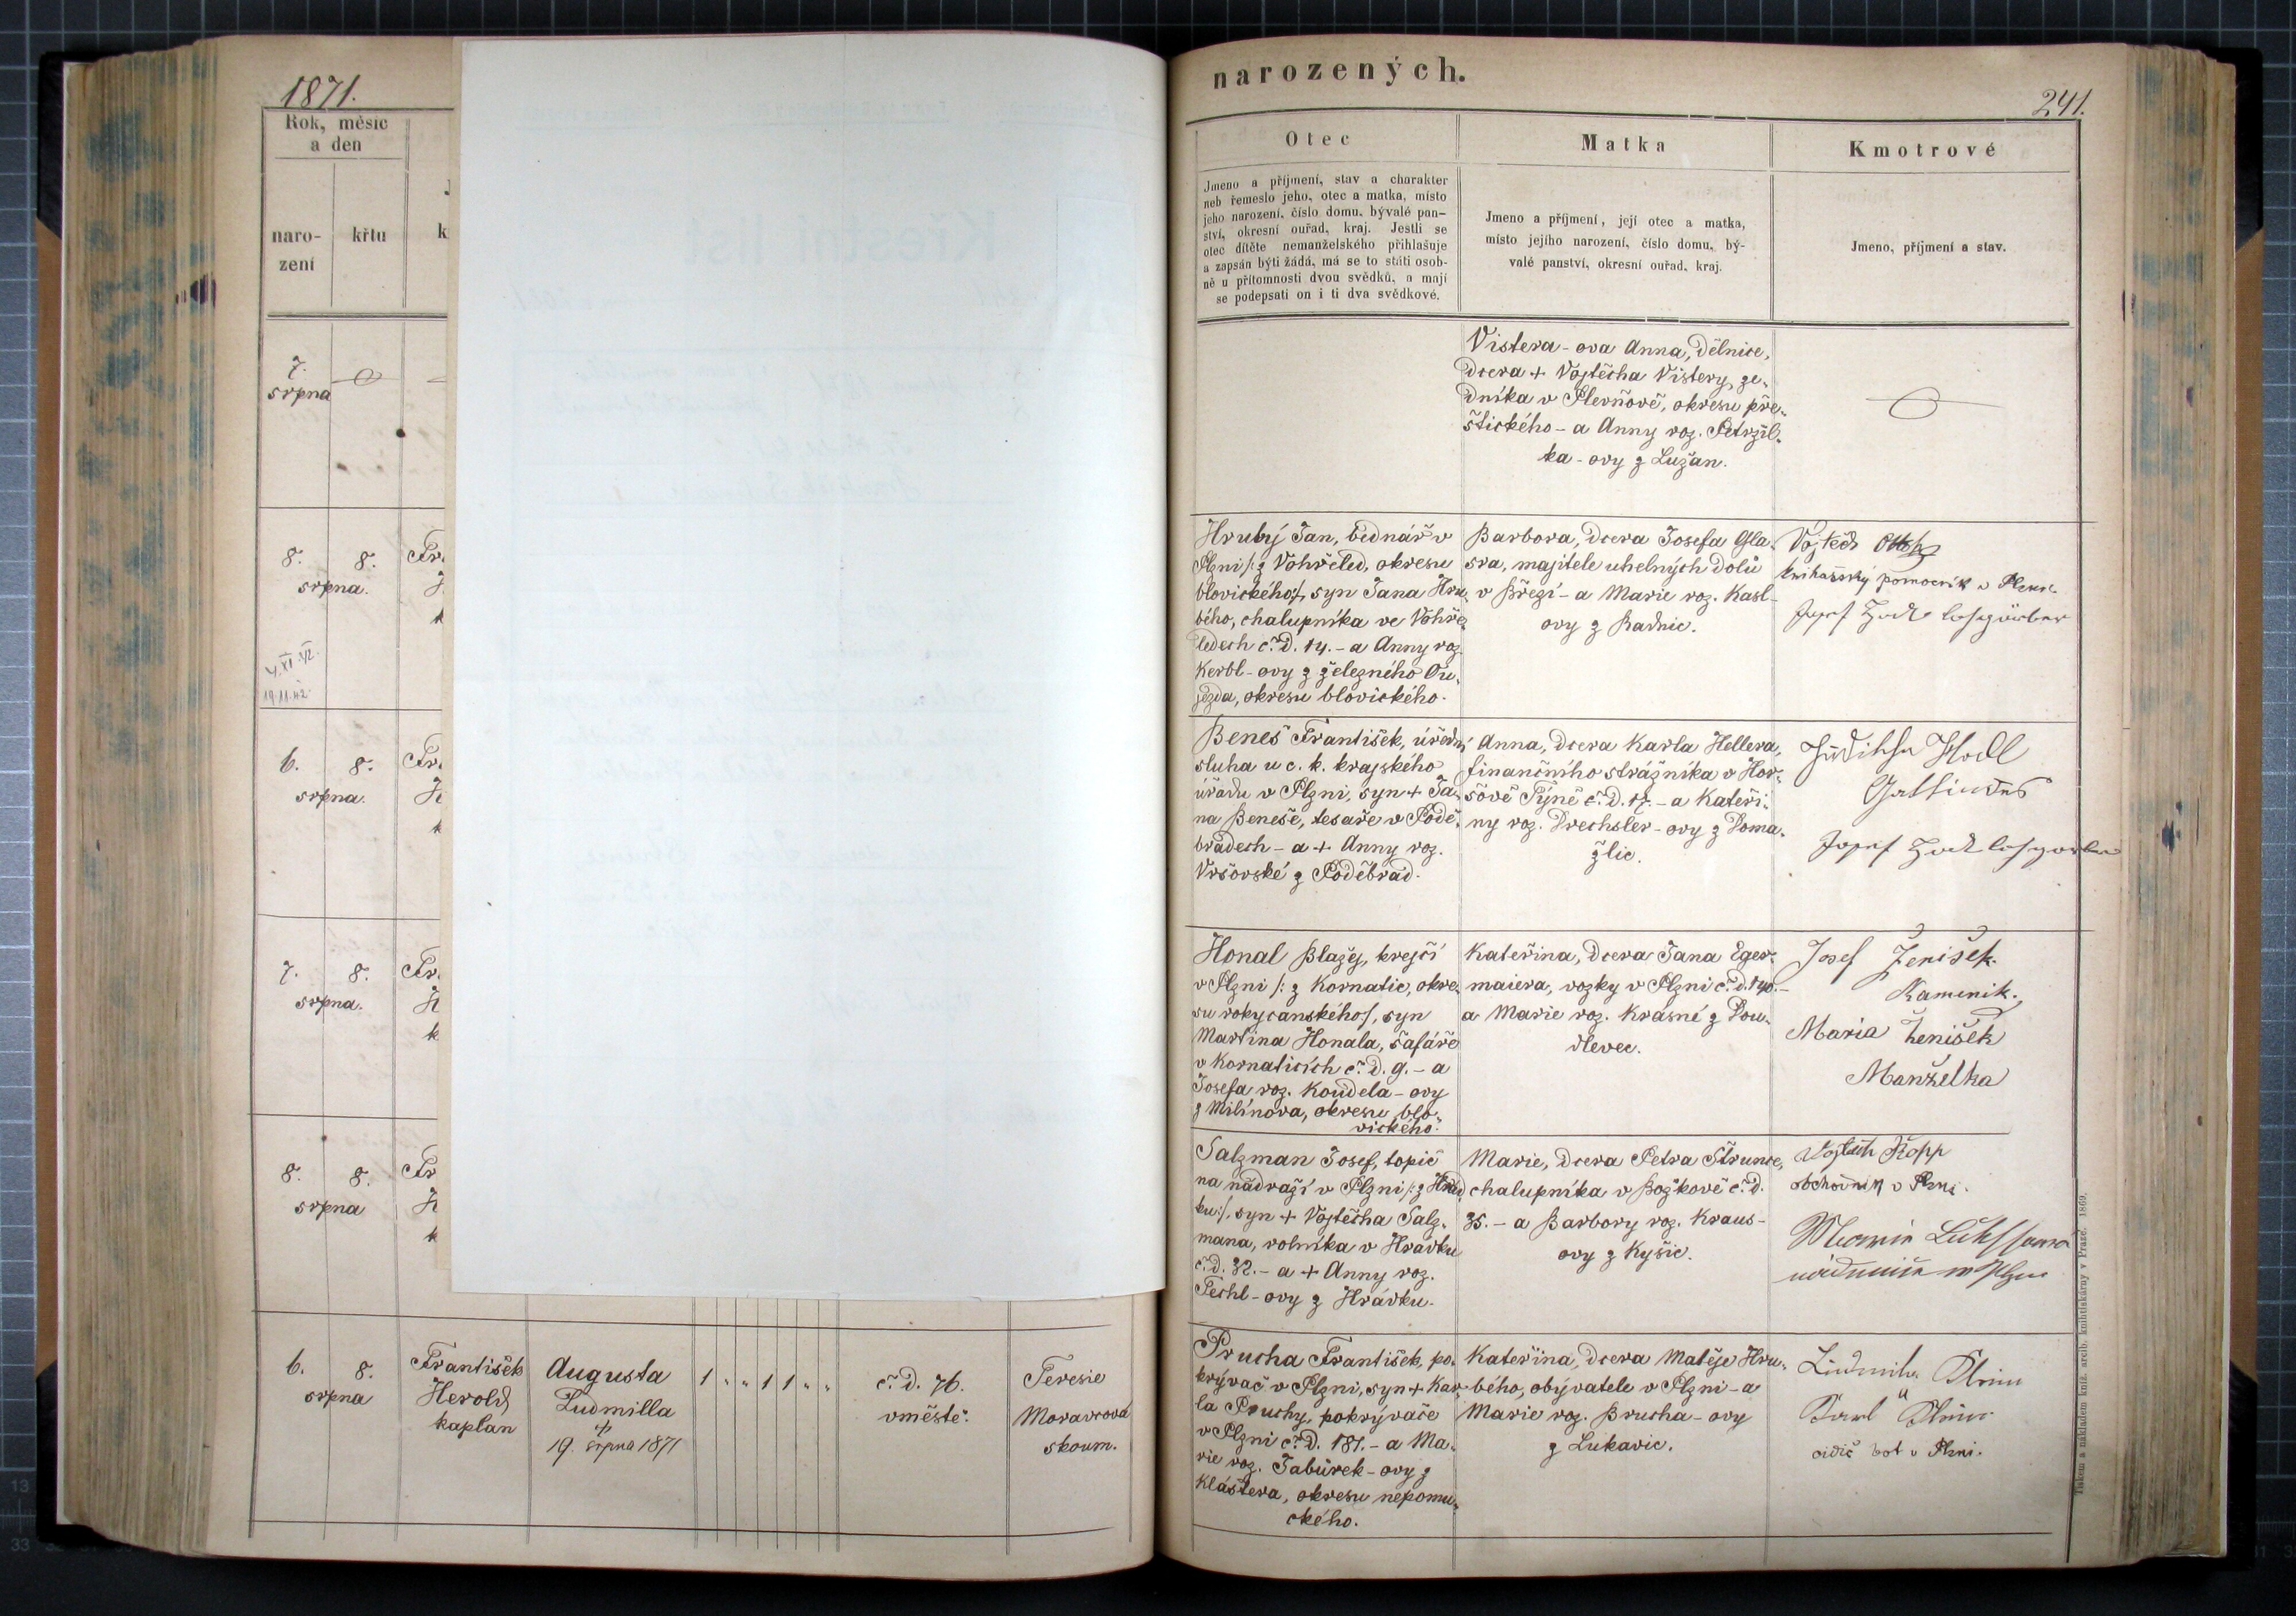 1871.
Rok, měsíc
a den
naro-
zení
křtu
7.
srpna
8. 8.
srpna.
4.XI.42.
19.11.42.
6. 8.
srpna.
7. 8.
srpna.
8. 8.
srpna
6. 8.
srpna
František
Herold
kaplan
Augusta
Ludmilla
+
19. srpna 1871
1 „ „ 1 1 „ „
č. d. 76.
v městě.
Teresie
Moravcová
skoum.
narozených.
241.
Otec
Jmeno a příjmení, stav a charakter
neb řemeslo jeho, otec a matka, místo
jeho narození, číslo domu, bývalé pan-
ství, okresní ouřad, kraj. Jestli se
otec dítěte nemanželského přihlašuje
a zapsán býti žádá, má se to státi osob-
ně u přítomnosti dvou svědků, a mají
se podepsati on i ti dva svědkové.
Matka
Jmeno a příjmení, její otec a matka,
místo jejího narození, číslo domu, bý-
valé panství, okresní ouřad, kraj.
Kmotrové
Jmeno, příjmení a stav.
Vistera-ova Anna, dělnice,
dcera + Vojtěcha Vistery, ze-
dníka v Plevňově, okresu pře-
štického - a Anny roz. Petržil-
ka-ovy z Lužan.
Hrubý Jan, bednář v
Plzni /: z Vohřeled, okresu
blovického:/, syn Jana Hru-
bého, chalupníka ve Vohře-
ledech č. d. 14. - a Anny roz.
Kerbl-ovy z železného Ou-
jezda, okresu blovického.
Barbora, dcera Josefa Gla-
sra, majitele uhelných dolů
v Břězí - a Marie roz. Kasl-
ovy z Radnic.
Vojtěch
knihařský pomocník v Plzni
Josef
Beneš František, úřední
sluha u c. k. krajského
úřadu v Plzni, syn + Ja-
na Beneše, tesaře v Podě-
bradech - a + Anny roz.
Vršovské z Poděbrad.
Anna, dcera Karla Hellera,
finančního strážníka v Hor-
šově Týně č. d. 17. - a Kateři-
ny roz. Drechsler-ovy z Doma-
žlic.
Josef
Honal Blažej, krejčí
v Plzni /: z Kornatic, okre-
su rokycanského:/, syn
Martina Honala, šafáře
v Kornaticích č. d. 9. - a
Josefa roz. Koudela-ovy
z Milínova, okresu blo-
vického.
Kateřina, dcera Jana Eger-
maiera, vozky v Plzni č. d. 140. -
a Marie roz. Krásné z Dou-
dlevec.
Josef Ženíšek
Kameník.
Maria Ženíšek
Manželka
Salzman Josef, topič
na nádraží v Plzni /: z Hrád-
ku:/, syn + Vojtěcha Salz-
mana, rolníka v Hrádku
č. d. 32. - a + Anny roz.
Techl-ovy z Hrádku.
Marie, dcera Petra Štrunce,
chalupníka v Božkově č. d.
35. - a Barbory roz. Kraus-
ovy z Kyšic.
Vojtěch Kopp
obchodník v Plzni.
Prucha František, po-
krývač v Plzni, syn + Kar-
la Pruchy, pokrývače
v Plzni č. d. 181. - a Ma-
rie roz. Tabůrek-ovy z
Kláštera, okresu nepomu-
ckého.
Kateřina, dcera Matěje Hru-
bého, obývatele v Plzni - a
Marie roz. Brucha-ovy
z Lukavic.
Ludmila
Karl
cidič bot v Plzni.
Tiskem a nákladem kníž. arcib. knihtiskárny v Praze. 1869.